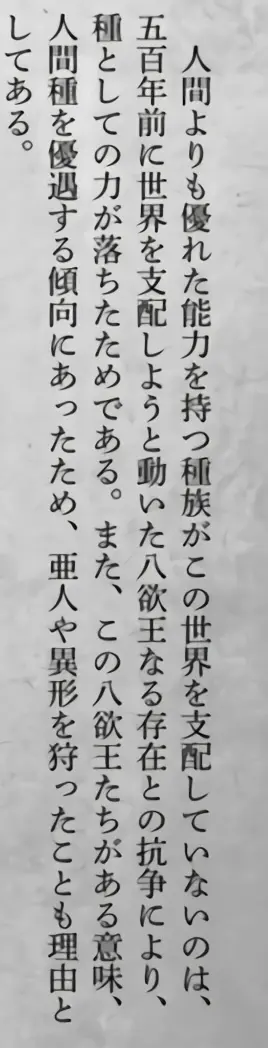 人間よりも優れた能力を持つ種族がこの世界を支配していないのは、
五百年前に世界を支配しようと動いた八欲王なる存在との抗争により、
種としての力が落ちたためである。また、この八欲王たちがある意味、
人間種を優遇する傾向にあったため、亜人や異形を狩ったことも理由と
してある。